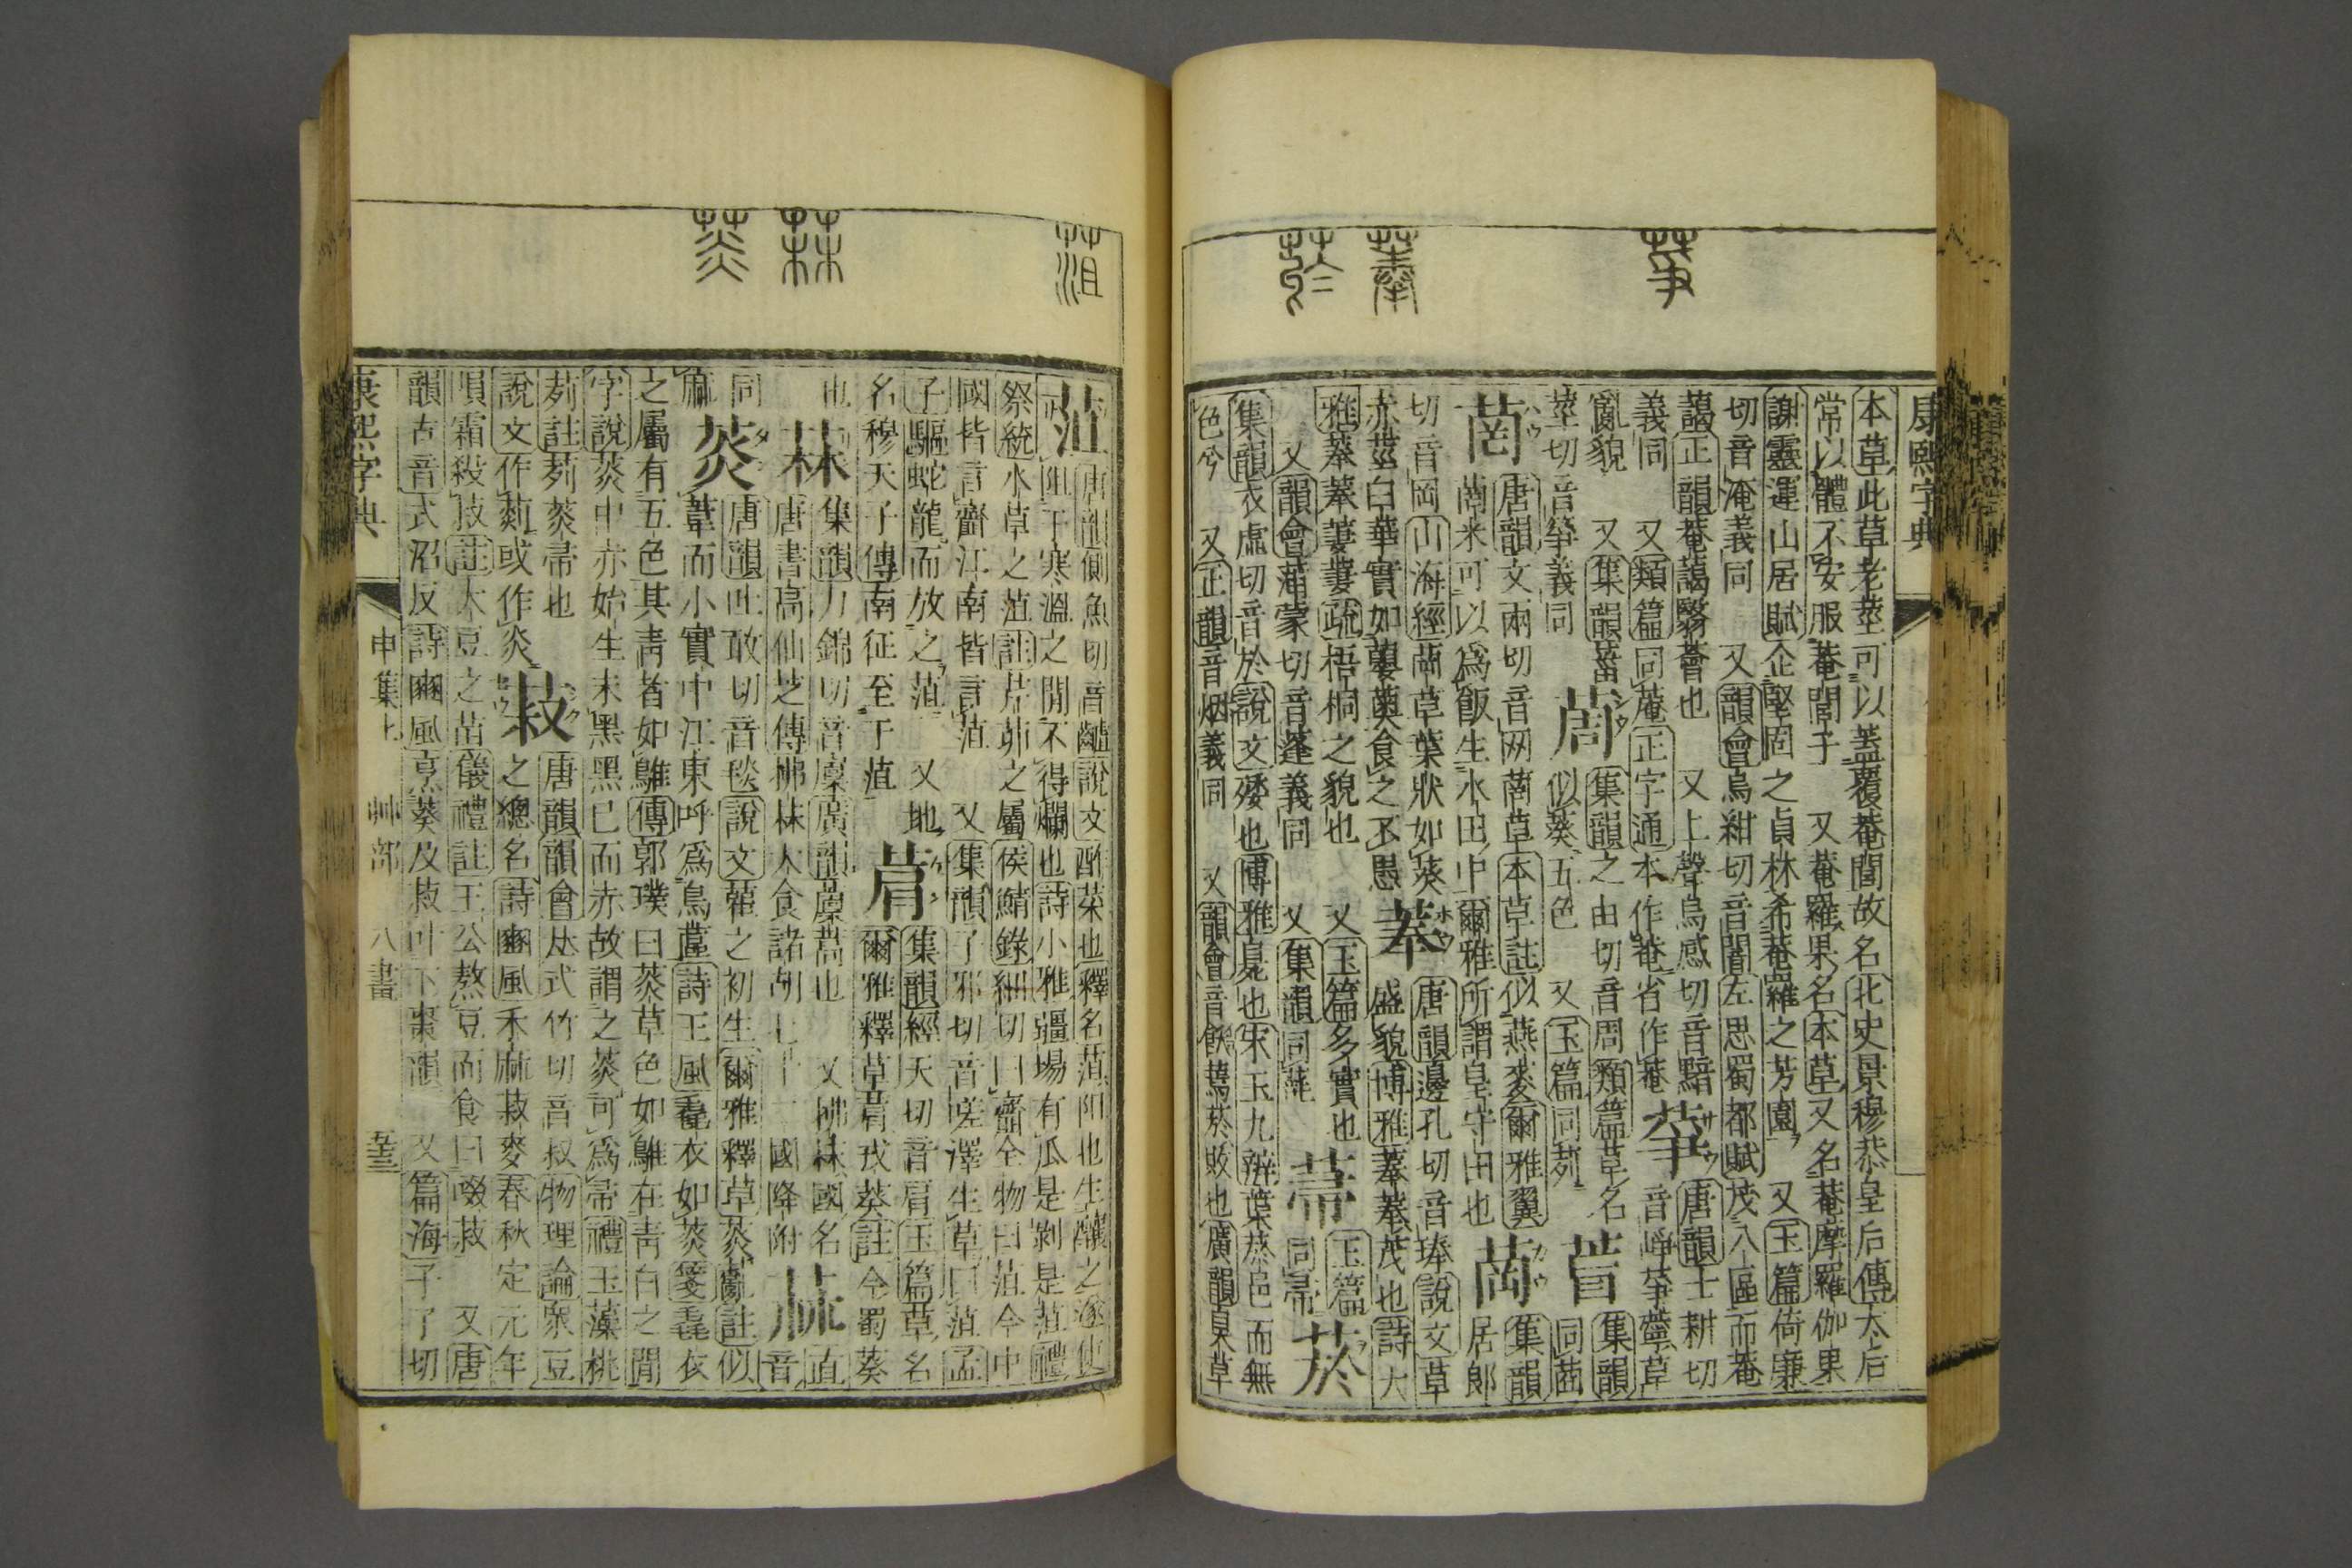 康熙字典
本草此草老莖可以蓋覆菴閭故名北史景穆恭皇后傳太后
常以體不安服菴閭子 又菴羅果名本草又名菴摩羅伽果
謝靈運山居賦企堅固之貞林希菴羅之芳園 又玉篇倚廉
切音淹義同 又韻會烏紺切音闇左思蜀都賦茂八區而菴
藹正韻菴藹翳薈也 又上聲烏感切音黯 唐韻士耕切
義同 又類篇同庵正字通本作菴省作菴 葶 音崢葶薴草
亂貌 又集韻蕃 萟 集韻之由切音周類篇草名 集韻
莖切音箏義同 似葵五色 又玉篇同茢 同菑
菵 唐韻文兩切音网菵草本草註似燕麥爾雅翼 集韻
菵米可以爲飯生水田中爾雅所謂皇守田也 居郎
切音岡山海經菵草葉狀如葵 菶 唐韻邊孔切音琫說文草
赤莖白華實如蘡薁食之不愚 盛貌博雅菶菶茂也詩大
雅菶菶萋萋疏梧桐之貌也 又玉篇多實也 玉篇
又韻會蒲蒙切音蓬義同 又集韻同 菷 同帚 菸
集韻衣虛切音於說文矮也博雅臰也宋玉九辯葉菸邑而無
色兮 又正韻音烟義同 又韻會音飫蔫菸敗也廣韻臭草
菹 唐韻側魚切音齟說文酢菜也釋名菹阻也生釀之遂使
阻于寒溫之閒不得爛也詩小雅疆場有瓜是剝是菹禮
祭統水草之菹註芹茆之屬侯鯖錄細切曰齏全物曰菹今中
國皆言齏江南皆言菹 又集韻子邪切音嗟澤生草曰菹孟
子驅蛇龍而放之菹 又地 菺 集韻經天切音肩玉篇草名
名穆天子傳南征至于菹 爾雅釋草菺戎葵註今蜀葵
也 菻 集韻力錦切音廩廣韻蒿也 又拂菻國名直
唐書高仙芝傳拂菻大食諸胡七十二國降附 音
同 菼 唐韻吐敢切音毯說文雚之初生爾雅釋草菼薍註似
葦而小實中江東呼爲烏蓲詩王風毳衣如菼箋毳衣
之屬有五色其靑者如鵻傳郭璞曰菼草色如鵻在靑白之閒
字說菼中赤始生末黑黑已而赤故謂之菼可爲帚禮玉藻桃
茢註茢菼帚也 菽 唐韻韻會𠀤式竹切音叔物理論衆豆
說文作尗或作菼 之總名詩豳風禾麻菽麥春秋定元年
隕霜殺菽註大豆之苗儀禮註王公熬豆而食曰啜菽 又唐
韻古音式沼反詩豳風烹葵及菽叶下棗韻 又篇海子了切
康熙字典 申集上 艸部 八畫